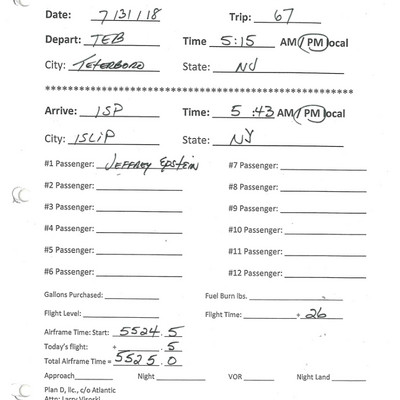 Date: 7/31/18 Trip: 67
Depart: TEB Time 5:15 AM/PM local
City: TETERBORO State: NJ
Arrive: ISP Time: 5:43 AM/PM local
City: ISLIP State: NY
#1 Passenger: JEFFREY EPSTEIN #7 Passenger:
#2 Passenger: #8 Passenger:
#3 Passenger: #9 Passenger:
#4 Passenger: #10 Passenger:
#5 Passenger: #11 Passenger:
#6 Passenger: #12 Passenger:
Gallons Purchased: Fuel Burn lbs.
Flight Level: Flight Time: + 26
Airframe Time: Start: 5524.5
Today's flight: + .5
Total Airframe Time = 5525.0
Approach Night VOR Night Land
Plan D, llc., c/o Atlantic
Attn: Larry Visoski